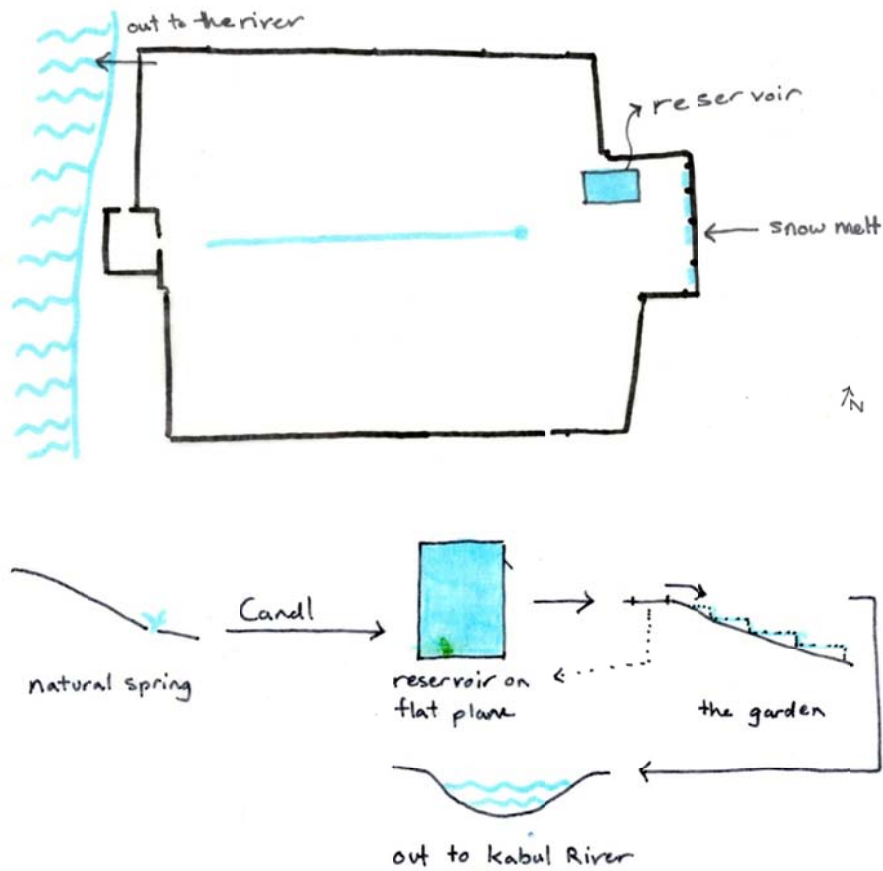 out to the river
reservoir
snow melt
N
Canal
natural spring
reservoir on
flat plane
the garden
out to Kabul River